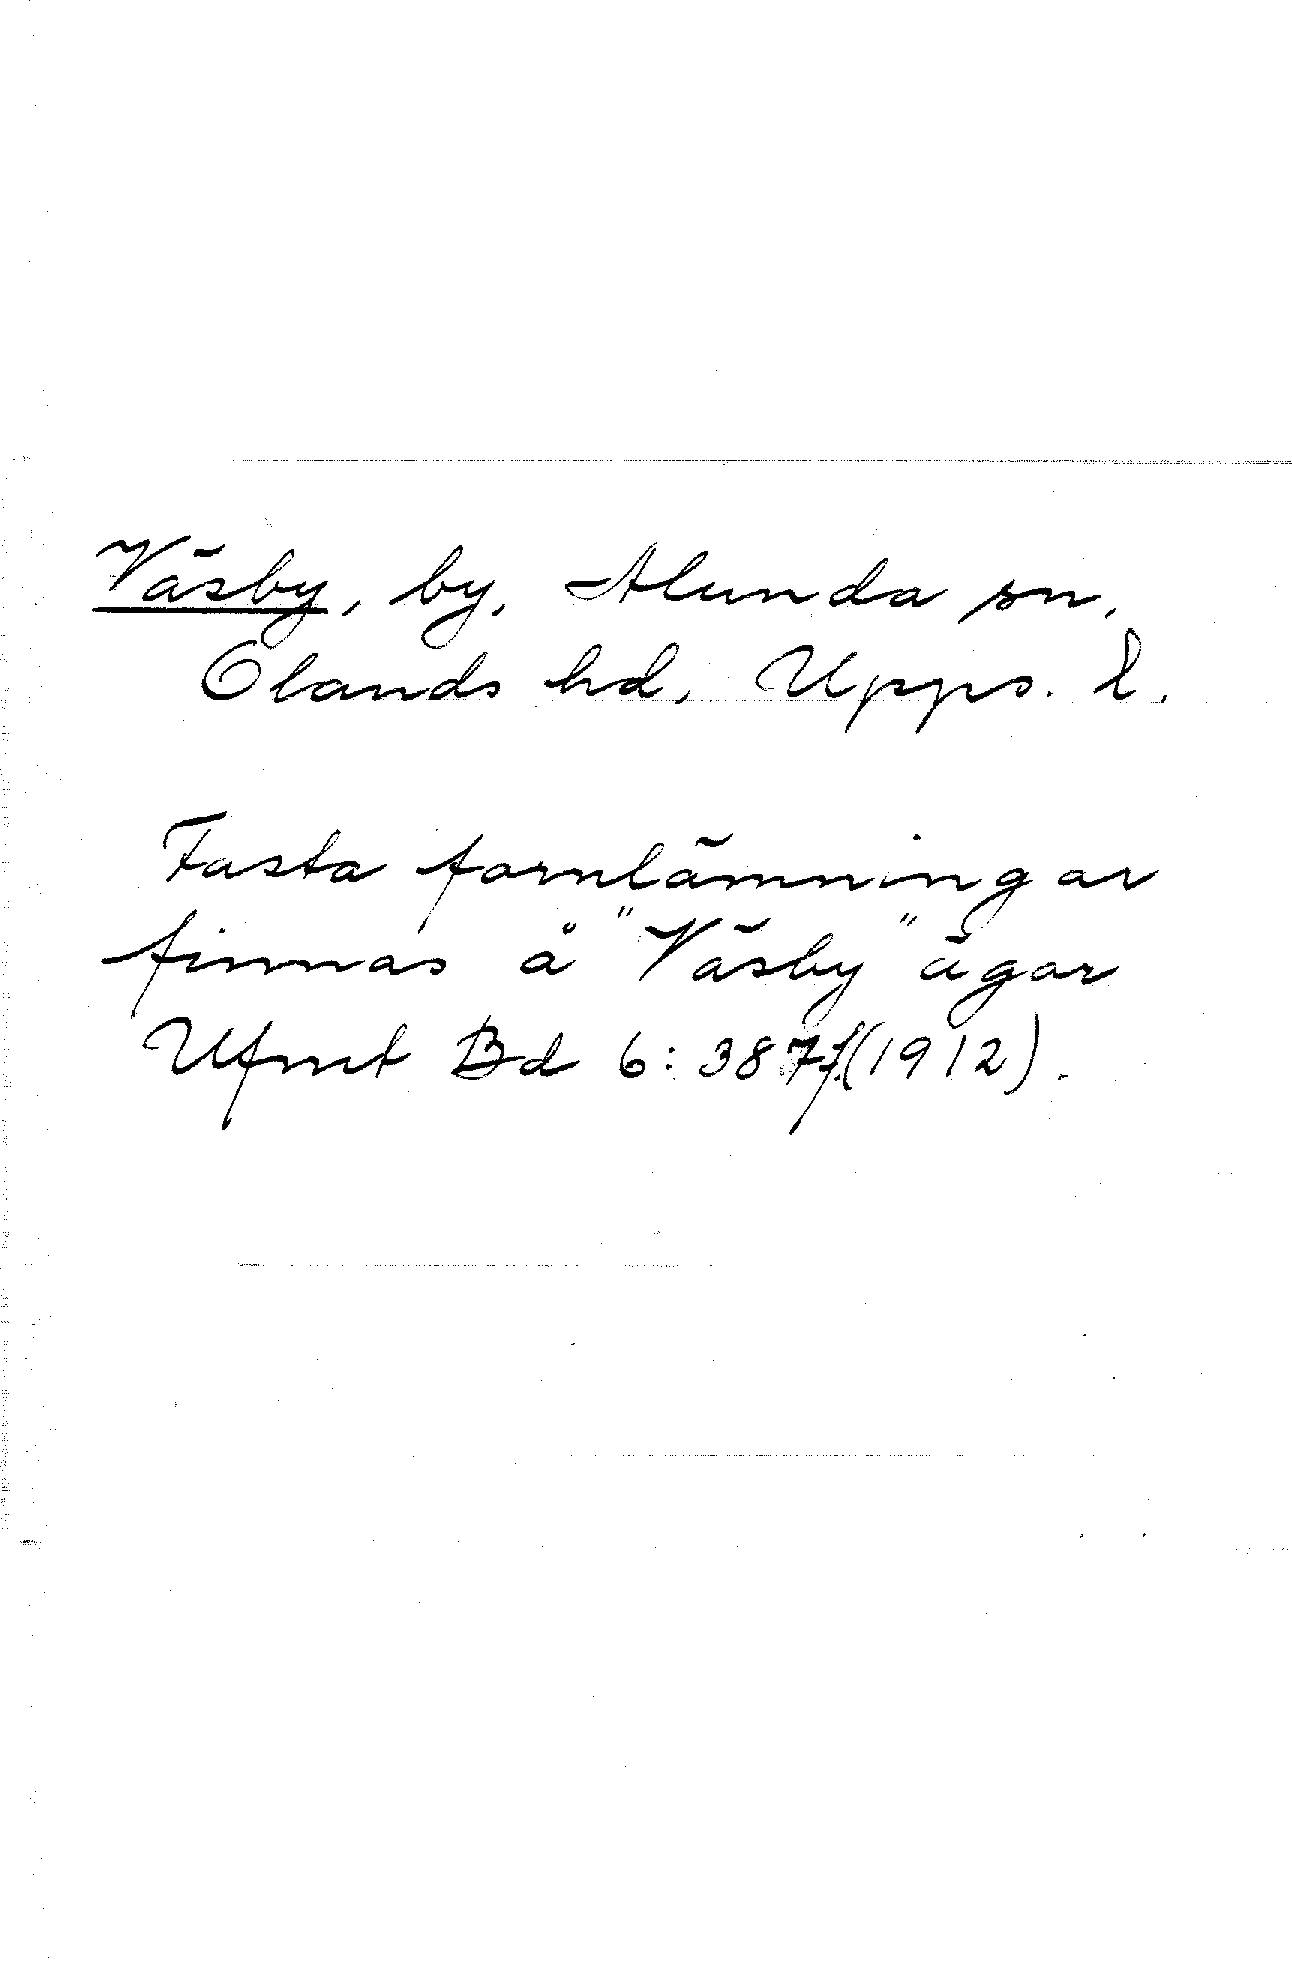 Väsby, by, Alunda sn,
Olands hd, Upps. l.
Fasta fornlämningar
finnas å "Väsby" ägor
Ufmt Bd 6: 387f.(1912).